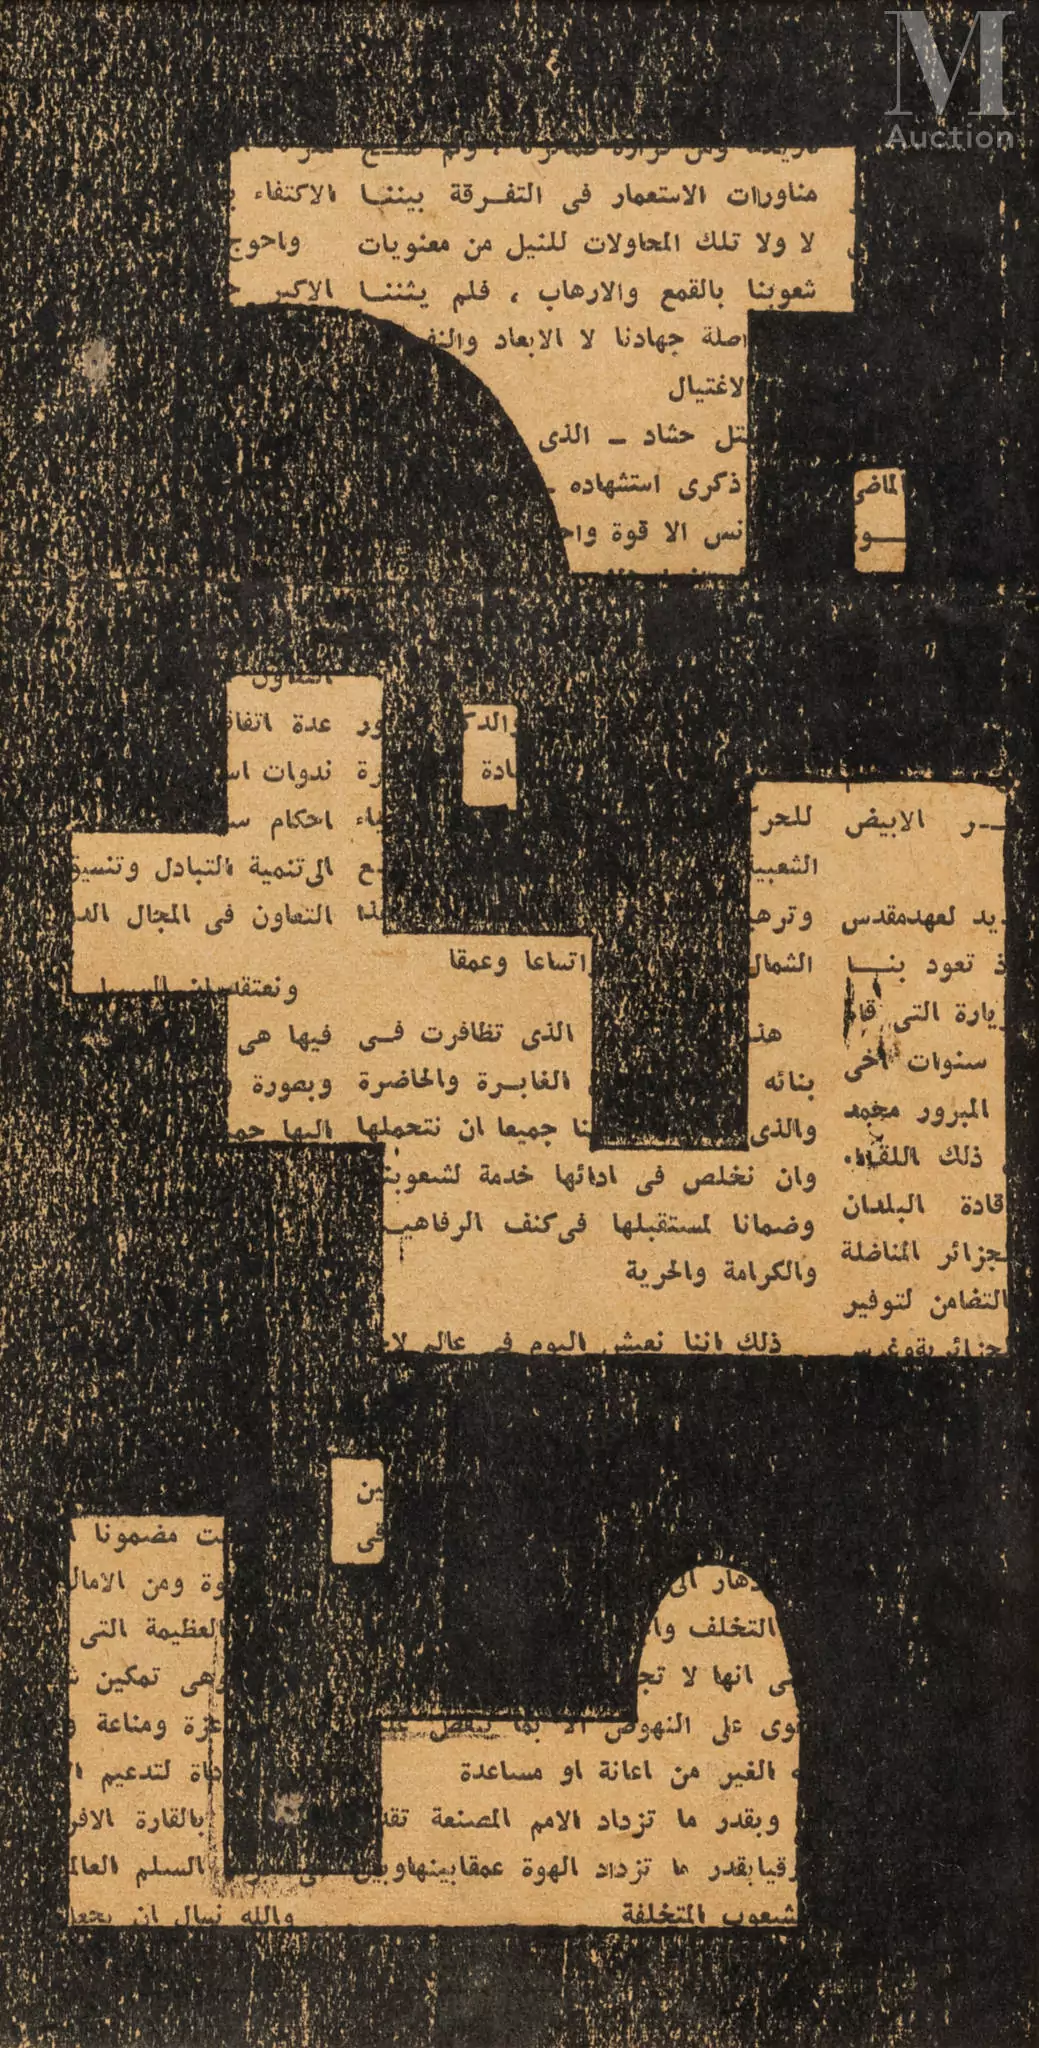 M
Auction
مناورات الاستعمار فى التفرقة بيننا
لا ولا تلك المحاولات للنيل من معنويات
شعوبنا بالقمع والارهاب ، فلم يثننا
اصلة جهادنا لا الابعاد والنف
لاغتيال
تل حشاد ـ الذى
ذكرى استشهاده ـ
نس الا قوة واح
الاكتفاء ب
واحوج
الاكبر
الماضى
ـر الابيض
ديد لعهد مقدس
ذ تعود بنا
زيارة التى قام
سنوات اخى
المبرور محمد
ذلك اللقاء
قادة البلدان
لجزائر المناضلة
التضامن لتوفير
للحر
الشعبية
وتره
الشمال
هذ
بنائه
والذى
وان نخلص فى ادائها خدمة لشعوبنا
وضمانا لمستقبلها فى كنف الرفاهيـ
والكرامة والحرية
ذلك اننا نعيش اليوم فى عالم لا
والد
ادة
اتساعا وعمقا
الذى تظافرت فى
الغابرة والحاضرة
نا جميعا ان نتحملها
التعاون
عدة اتفاق
ندوات اس
احكام س
الى تنمية التبادل وتنسيق
التعاون فى المجال الد
ونعتقد ان
فيها هى
وبصورة
اليها
ين
فى
دهار الى
التخلف وا
انها لا تج
قوى على النهوض الا بما
الغير من اعانة او مساعدة
وبقدر ما تزداد الامم المصنعة تقد
رقيا بقدر ما تزداد الهوة عمقا بينها وبين
لشعوب المتخلفة
ت مضمونا
وة ومن الامال
العظيمة التى
وهى تمكين
عزة ومناعة
داة لتدعيم
بالقارة الافر
السلم العالم
والله نسال ان يجعل